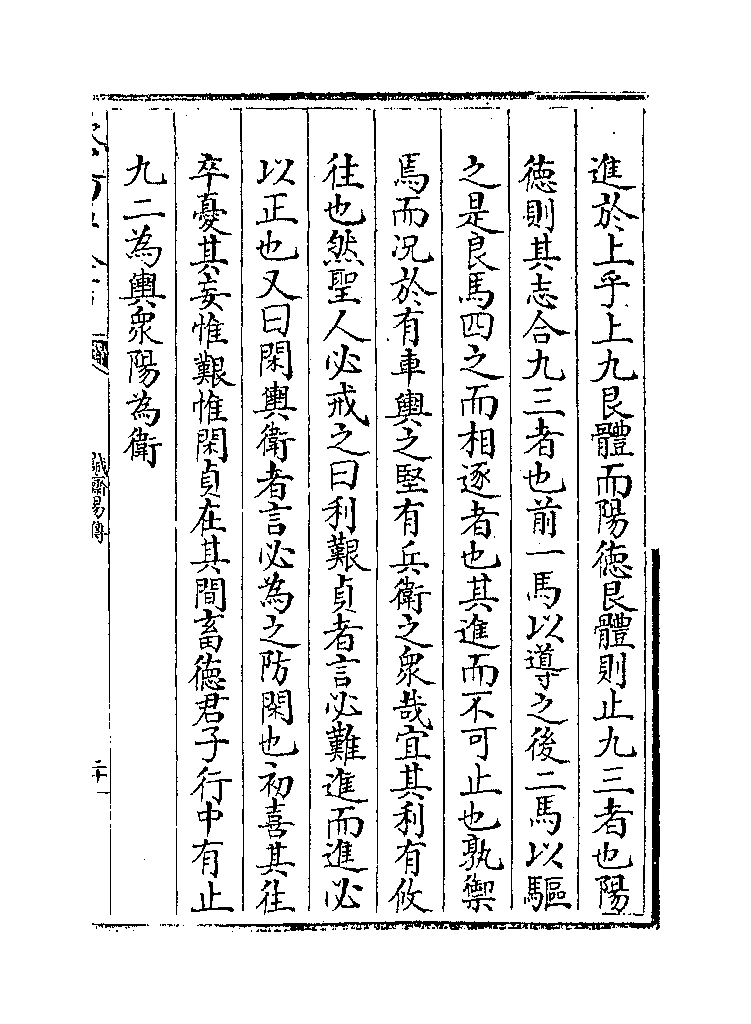 進於上乎上九艮體而陽徳艮體則止九三者也陽
徳則其志合九三者也前一馬以導之後二馬以驅
之是良馬四之而相逐者也其進而不可止也孰禦
焉而况於有車輿之堅有兵衛之衆哉宜其利有攸
往也然聖人必戒之曰利艱貞者言必難進而進必
以正也又曰閑輿衛者言必為之防閑也初喜其往
卒憂其妄惟艱惟閑貞在其間畜徳君子行中有止
九二為輿衆陽為衛
誠齋易傳
二十一